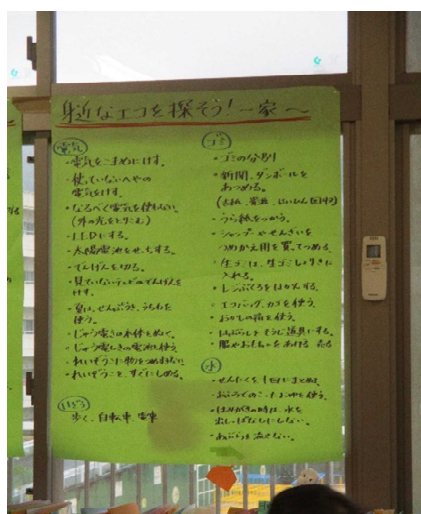 身近なエコを探そう!ー家〜
電気
・電気をこまめにけす。
・使っていないへやの
電気をけす。
・なるべく電気を使わない
(外の光をとりこむ)
・LEDにする。
・太陽電池をせっちする。
・でんげんを切る。
・見ていないテレビのでんげんを
けす。
・夏は、せんぷうき、うちわを
使う。
・じゅう電きの本体をぬく。
・じゅう電しきの電池を使う。
・れいぞうこに物をつめすぎない
・れいぞうこを、すぐにしめる。
歩く、自転車、電車
ゴミ
・ゴミの分別
・新聞、ダンボールを
あつめる。
・うら紙をつかう。
・シャンプーやせんざいを
つめかえ用を買ってつめる。
・生ゴミは、生ゴミしょりきに
入れる。
・レジぶくろをはかんする。
・エコバッグ、カゴを使う
・おかしの箱を使う
・はぶらしをそうじ道具にする。
・服やおもちゃをあげる 売る
水
・せんたくを1回にまとめる。
・おふろののこり水を使う。
・はみがきの時は、水を
出しっぱなしにしない。
・あぶらは流さない。